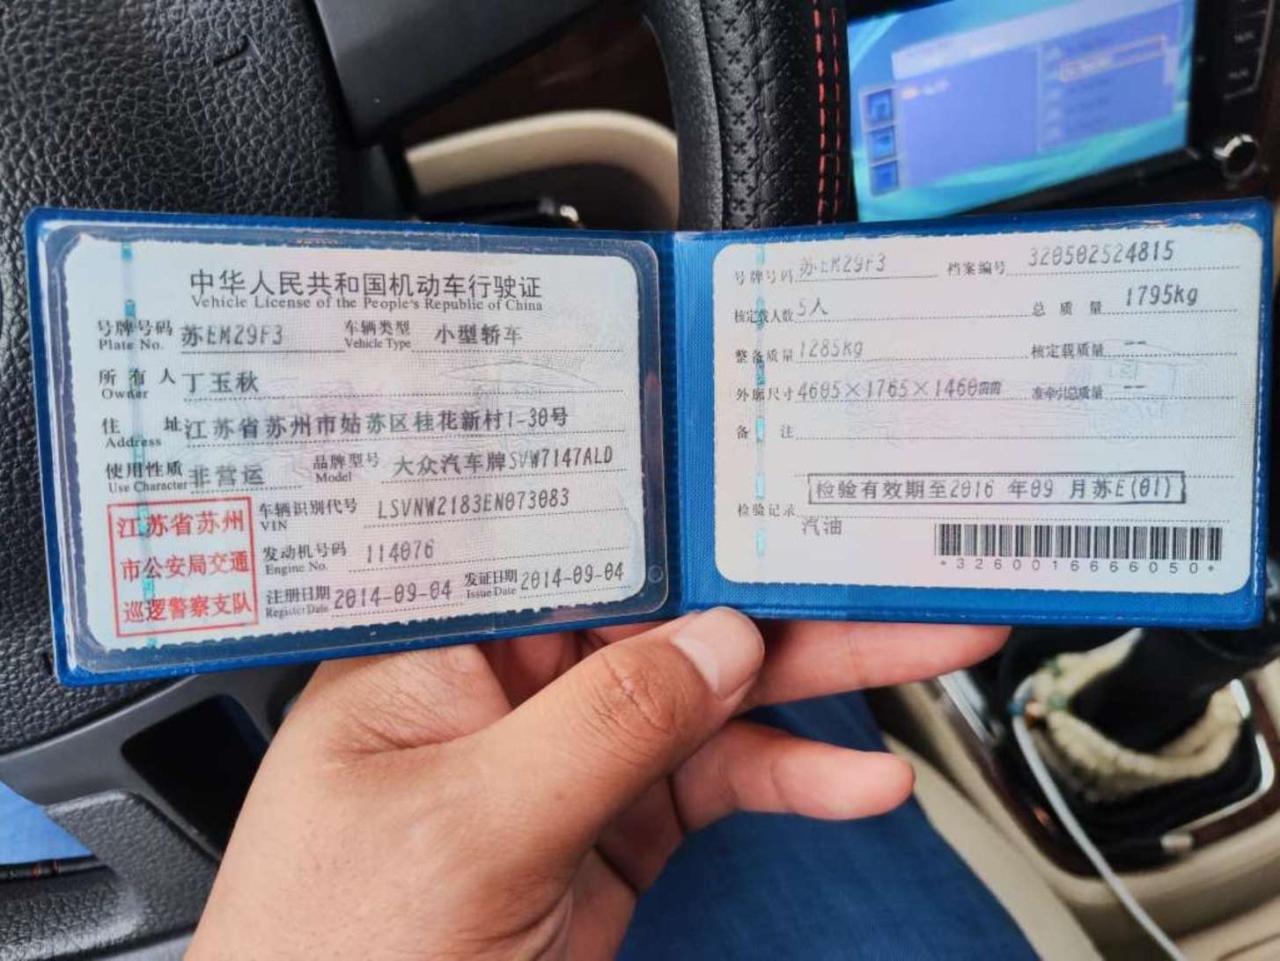 中华人民共和国机动车行驶证
Vehicle License of the People's Republic of China
号牌号码 苏EM29F3 车辆类型 小型轿车
Plate No. Vehicle Type
所有人 丁玉秋
Owner
住址 江苏省苏州市姑苏区桂花新村1-30号
Address
使用性质 非营运 品牌型号 大众汽车牌SVW7147ALD
Use Character Model
江苏省苏州
市公安局交通
巡逻警察支队
车辆识别代号 LSVNW2183EN073083
VIN
发动机号码 114076
Engine No.
注册日期 2014-09-04 发证日期 2014-09-04
Register Date Issue Date
号牌号码 苏EM29F3 档案编号 320502524815
核定载人数 5人 总质量 1795kg
整备质量 1285kg 核定载质量 --
外廓尺寸 4605×1765×1460 准牵引总质量 --
备注
检验有效期至2016 年09 月苏E(01)
检验记录
汽油
*3260016666050*